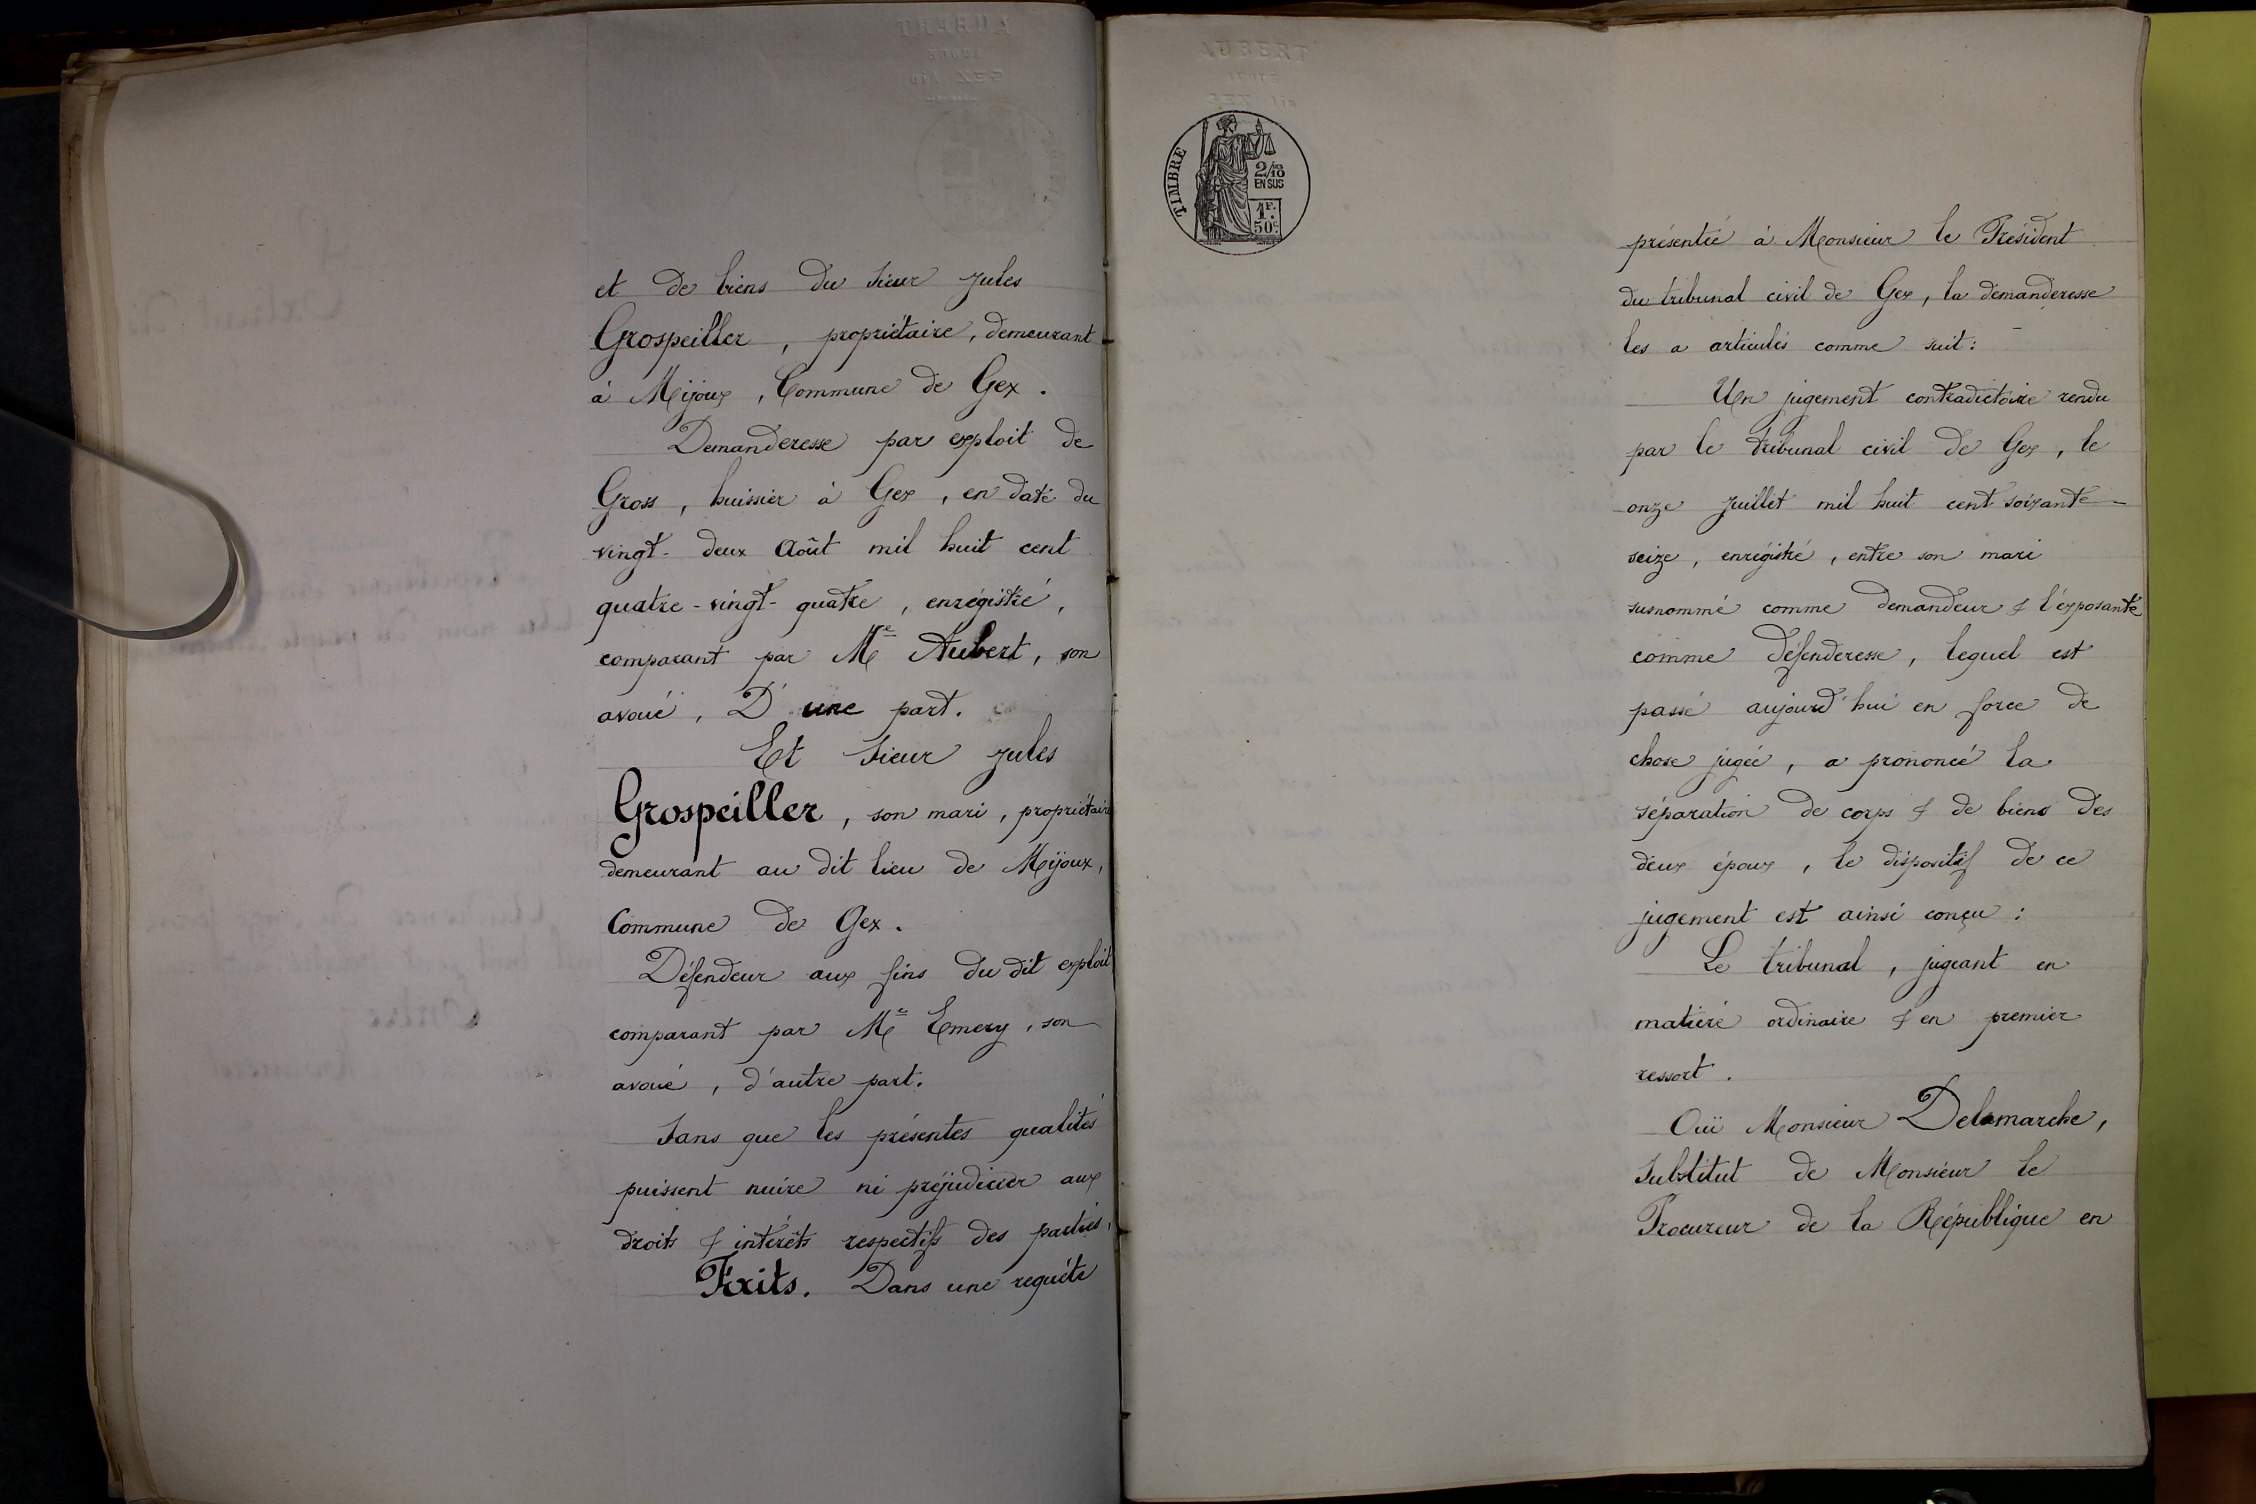 et de biens du sieur Jules
Grospeiller, propriétaire, demeurant
à Mijoux, Commune de Gex.
Demanderesse par exploit de
Gross, huissier à Gex, en date du
vingt-deux Août mil huit cent
quatre-vingt-quatre, enrégistré,
comparant par Me Aubert, son
avoué, D'une part.
Et sieur Jules
Grospeiller, son mari, propriétaire
demeurant au dit lieu de Mijoux,
Commune de Gex.
Défendeur aux fins du dit exploit
comparant par Me Emery, son
avoué, d'autre part.
Sans que les présentes qualités
puissent nuire ni préjudicier aux
droits & intérêts respectifs des parties.
Faits. Dans une requête
AUBERT
TIMBRE
2/10
EN SUS
1F.
50c.
présentée à Monsieur le Président
du tribunal civil de Gex, la demanderesse
les a articulés comme suit:
Un jugement contradictoire rendu
par le tribunal civil de Gex, le
onze Juillet mil huit cent soixante
seize, enrégistré, entre son mari
susnommé comme demandeur & l'exposante
comme défenderesse, lequel est
passé aujourd'hui en force de
chose jugée, a prononcé la
séparation de corps & de biens des
deux époux, le dispositif de ce
jugement est ainsi conçu:
Le tribunal, jugeant en
matière ordinaire & en premier
ressort.
Ouï Monsieur Delamarche,
Substitut de Monsieur le
Procureur de la République en